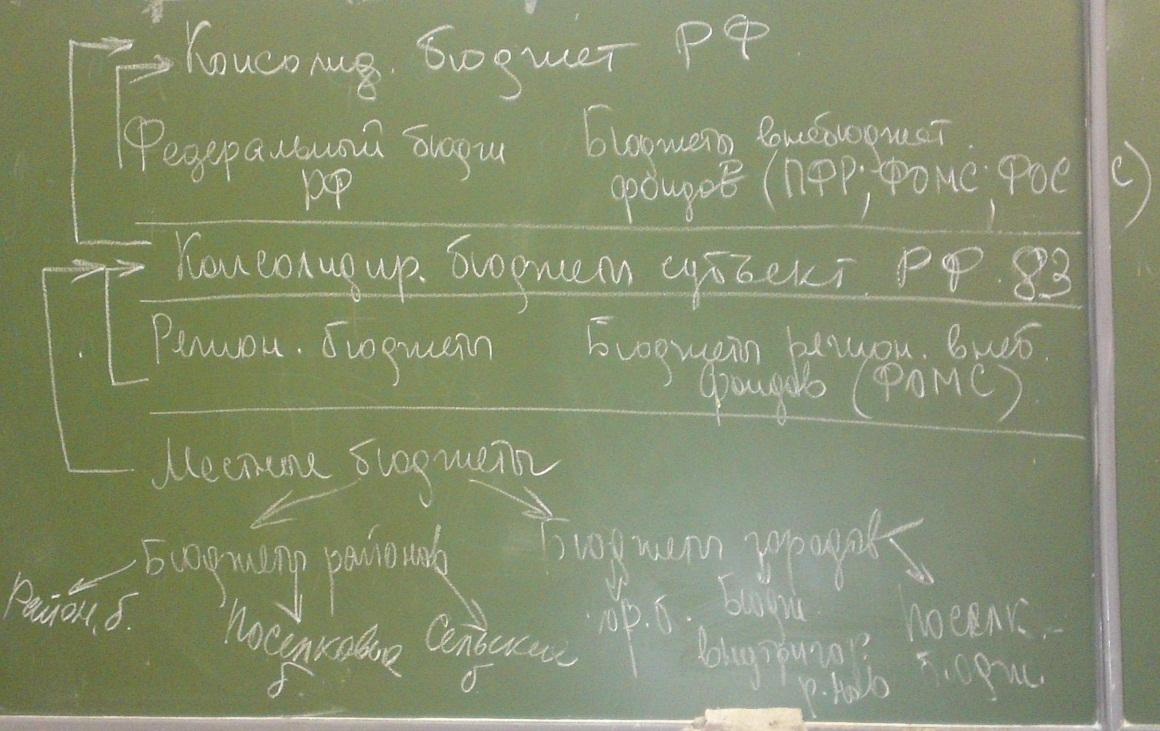 Консолид. бюджет РФ
Федеральный бюдж Бюджеты внебюджет.
РФ фондов (ПФР, ФОМС, ФОС С)
Консолидир. бюджеты субъект. РФ. 83
Регион. бюджеты Бюджеты регион. внеб.
фондов (ФОМС)
Местные бюджеты
Бюджеты районов Бюджеты городов
Район. б. Поселковые Сельские гор. б. Бюдж. Поселк.
б б внутригор. Бюдж.
р-нов